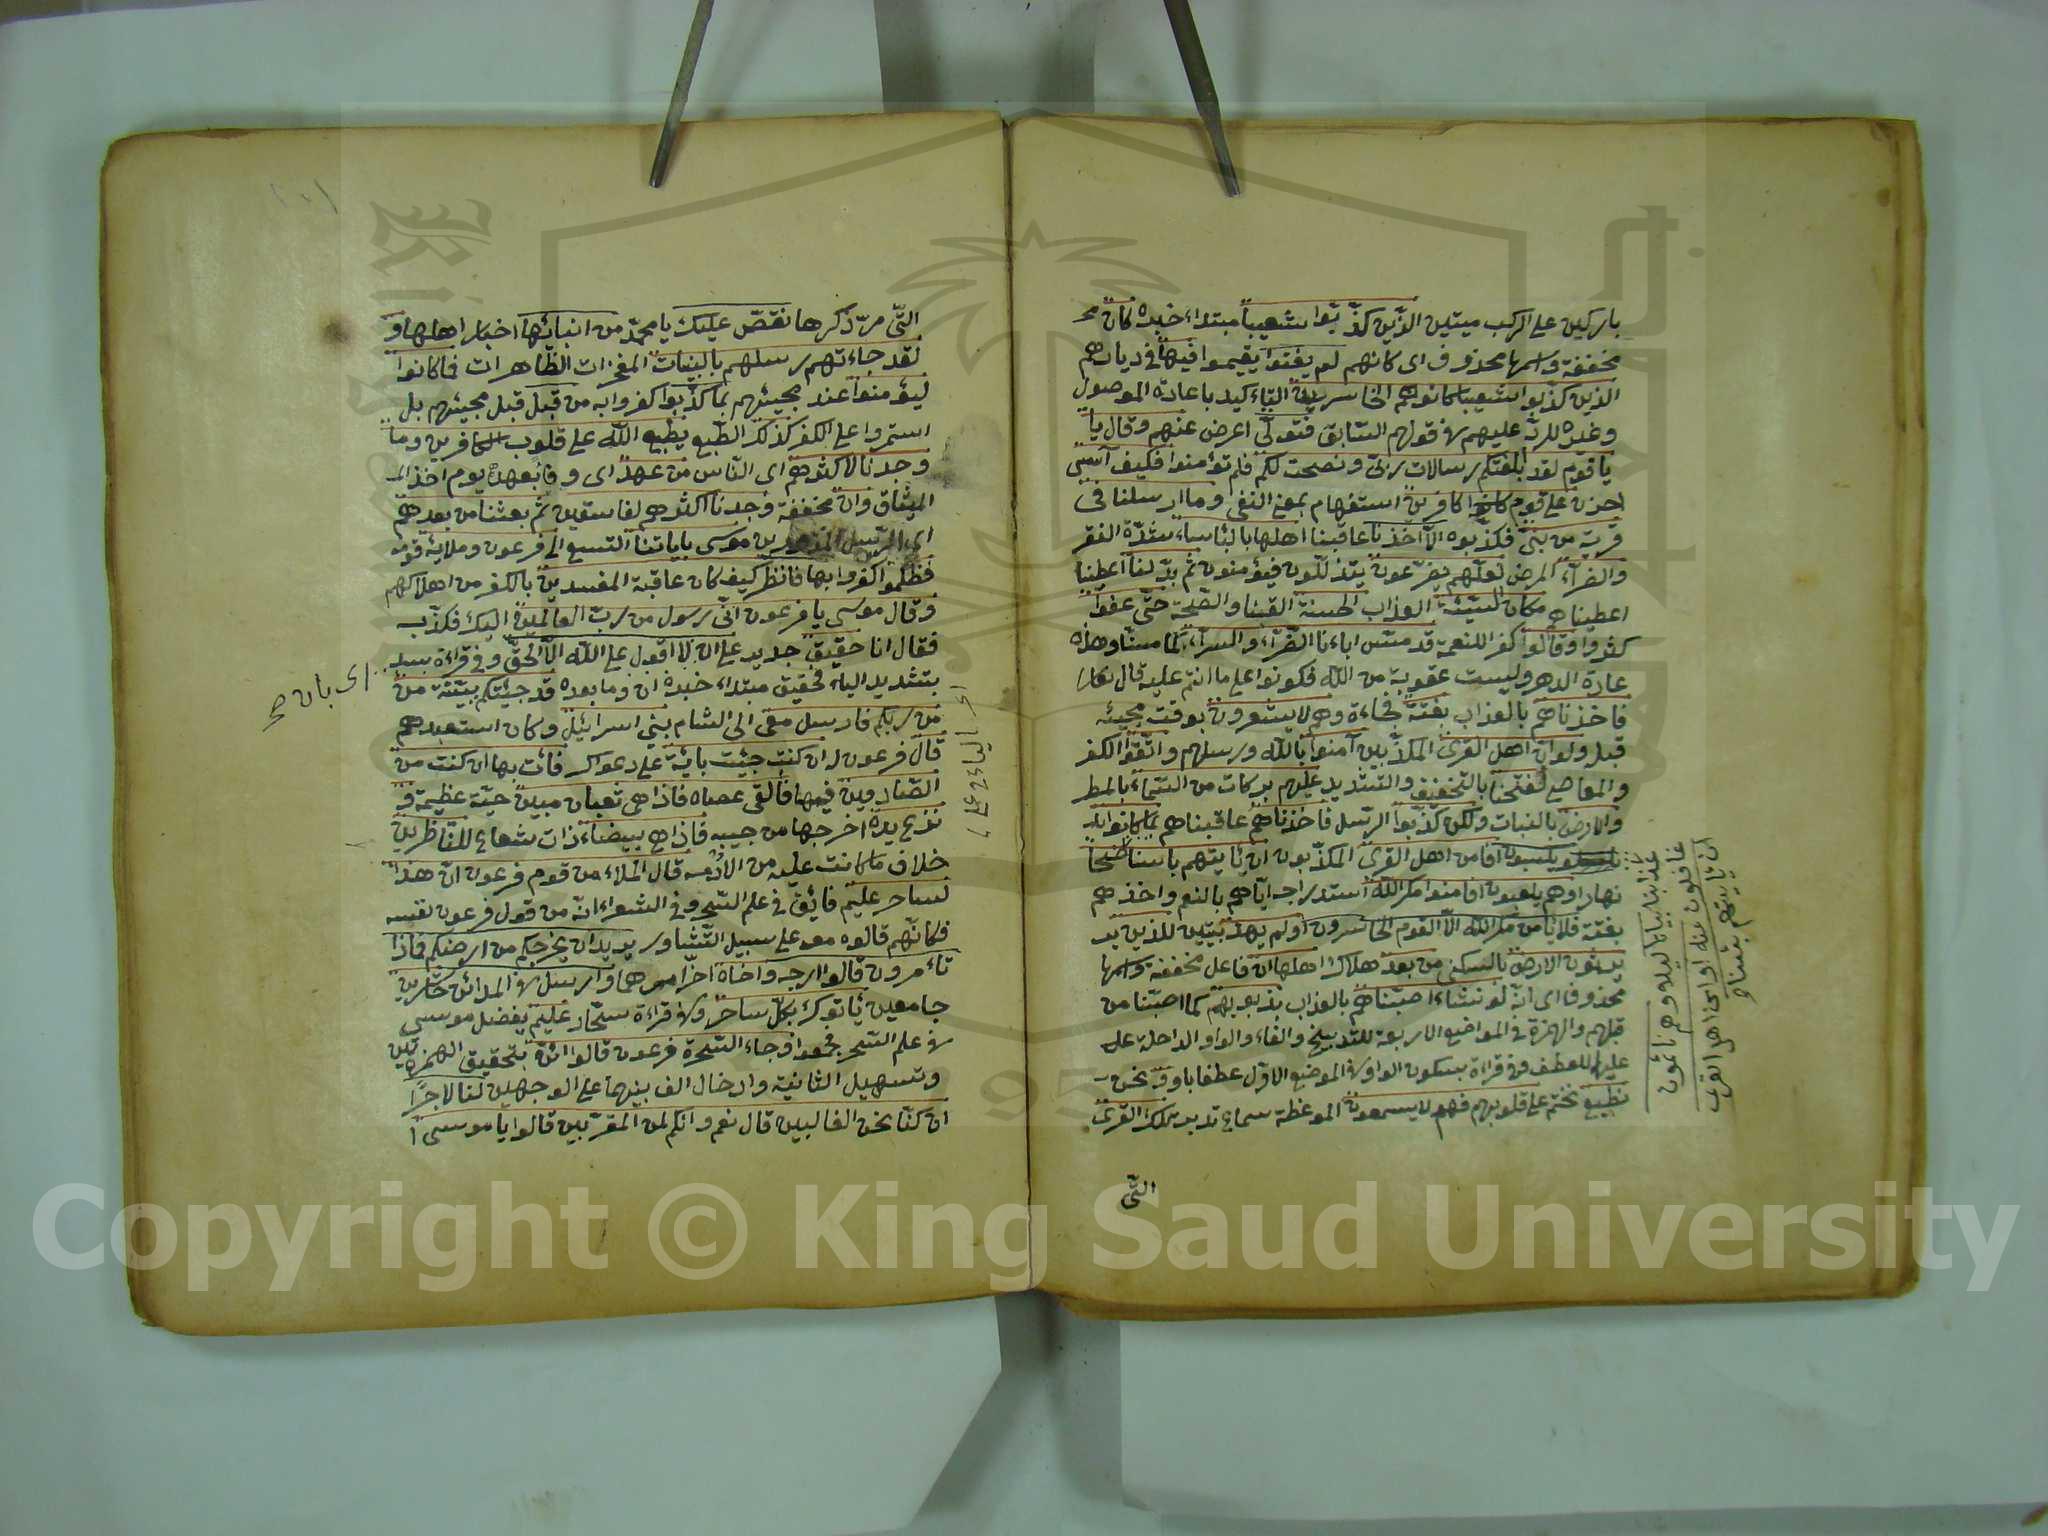 باركين على الركب ميتين الذين كذبوا شعيبا مبتداء خبره كان
مخففة واسمها محذوف اى كانهم لم يغنوا يقيموا فيها فى ديارهم
الذين كذبوا شعيبا كانوا هم الخاسرين التاءكيد باعادة الموصول
وغيره للرد عليهم فى قولهم السابق فتولى اعرض عنهم وقال يا
يا قوم لقد ابلغتكم رسالات ربى ونصحت لكم فلم تؤمنوا فكيف آسى
احزن على قوم كافرين استفهام بمعنى النفى وما ارسلنا فى
قرية من نبى فكذبوه الا اخذنا عاقبنا اهلها بالبئاساء شدة الفقر
والضراء المرض لعلهم يضرعون يتذللون فيؤمنون ثم بدلنا اعطينا
اعطيناهم مكان السيئة العذاب الحسنة الغنا والصحة حتى عفوا
كثروا وقالوا كفر اللنعمة قد مس اباءنا الضراء والسراء كما مسنا وهذه
عادة الدهر وليست عقوبة من الله فكونوا على ما انتم عليه قال تعالى
فاخذناهم بالعذاب بغتة فجاءة وهم لا يشعرون بوقت مجيئه
قبله ولو ان اهل القرى المكذبين آمنوا بالله ورسلهم واتقوا الكفر
والمعاصى لفتحنا بالتخفيف والتشديد عليهم بركات من السماء بالمطر
والارض بالنبات ولكن كذبوا الرسل فاخذناهم عاقبناهم بما كانوا
يكسبون افامن اهل القرى المكذبون ان ياتيهم باسنا ضحا
نهارا وهم يلعبون افامنوا مكر الله استدراجه اياهم بالنعم واخذهم
بغتة فلا يامن مكر الله الا القوم الخاسرون اولم يهد يتبين للذين ير
يرثون الارض بالسكنى من بعد هلاك اهلها ان فاعل مخففة واسمها
محذوف اى انه لو نشاء اصبناهم بالعذاب بذنوبهم كما اصبنا من
قبلهم والهمزة فى المواضع الاربعة للتوبيخ والفاء والواو الداخلة على
عليها للعطف وفى قراءة بسكون الواو فى الموضع الاول عطفا باو و نحن
نطبع نختم على قلوبهم فهم لا يسمعون الموعظة سماع تدبر تلك القرى
عذابنا بياتا ليلا وهم نائمون
غافلون عنه او امن اهل القرى
ان ياتيهم باسنا
التى
التى مر ذكرها نقص عليك يا محمد من انبائها اخبار اهلها و
لقد جاءتهم رسلهم بالبينات المعجزات الظاهرات فما كانوا
ليؤمنوا عند مجيئهم بما كذبوا كفروا به من قبل قبل مجيئهم بل
استمروا على الكفر كذلك الطبع يطبع الله على قلوب الكافرين وما
وجدنا لاكثرهم اى الناس من عهد اى وفا بعهد يوم اخذ
الميثاق وان مخففة وجدنا اكثرهم لفاسقين ثم بعثنا من بعدهم
اى الرسل المذكورين موسى باياتنا التسع الى فرعون وملايه قومه
فظلموا كفروا بها فانظر كيف كان عاقبة المفسدين بالكفر من اهلاكهم
وقال موسى يا فرعون انى رسول من رب العالمين اليك فكذبه
فقال انا حقيق جدير على ان لا اقول على الله الا الحق وفى قراءة
بتشديد الياء فحقيق مبتداء خبره ان وما بعده قد جئتكم ببينة من
من ربكم فارسل معى الى الشام بنى اسرائيل وكان استعبدهم
قال فرعون له ان كنت جئت باية على دعواك فائت بها ان كنت من
الصادقين فيها فالقى عصاه فاذا هى ثعبان مبين حية عظيمة و
نزع يده اخرجها من جيبه فاذا هى بيضاء ذات شعاع للناظرين
خلاف ما كانت عليه من الادمه قال الملاء من قوم فرعون ان هذا
لساحر عليم فائق فى علم السحر وفى الشعراء انه من قول فرعون نفسه
فكانهم قالوه معه على سبيل التشاور يريد ان يخرجكم من ارضكم فماذا
تاءمرون قالوا ارجه واخاه اخر امرهما وارسل فى المدائن حاشرين
جامعين ياتوك بكل ساحر وفى قراءة سحار عليم يفضل موسى
فى علم السحر فجمعوا وجاء السحرة فرعون قالوا ائن بتحقيق الهمزتين
وتسهيل الثانية وادخال الف بينهما على الوجهين لنا لاجرا
ان كنا نحن الغالبين قال نعم وانكم لمن المقربين قالوا يا موسى ا
اى بان صح
Copyright © King Saud University